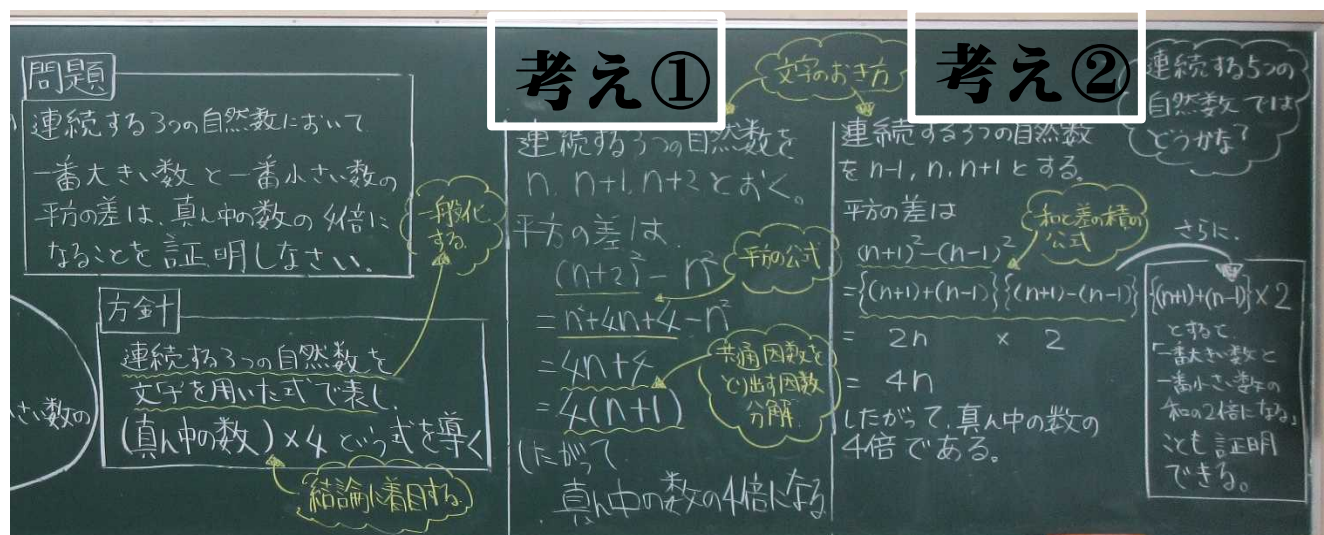 問題
連続する3つの自然数において
一番大きい数と一番小さい数の
平方の差は、真ん中の数の4倍に
なることを証明しなさい。
一般化
する
方針
連続する3つの自然数を
文字を用いた式で表し、
(真ん中の数)×4という式を導く
結論に着目する
さい数の
考え①
文字のおき方
連続する3つの自然数を
n, n+1, n+2とおく。
平方の差は、
(n+2)²-n²
平方の公式
=n²+4n+4-n²
=4n+4
=4(n+1)
共通因数を
とり出す因数
分解
したがって
真ん中の数の4倍になる
考え②
連続する3つの自然数
をn-1, n, n+1とする。
平方の差は
和と差の積の
公式
(n+1)²-(n-1)²
={(n+1)+(n-1)}{(n+1)-(n-1)}
= 2n × 2
= 4n
したがって、真ん中の数の
4倍である。
連続する5つの
自然数では
どうかな?
さらに、
{(n+1)+(n-1)}×2
とすると
「一番大きい数と
一番小さい数の
和の2倍になる」
ことも証明
できる。